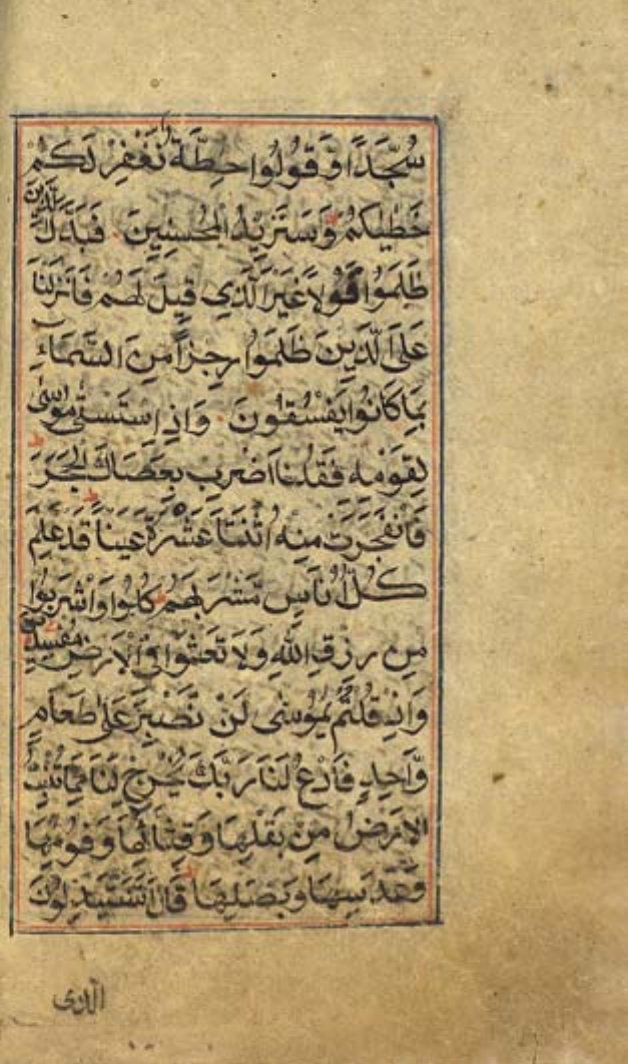 سُجَّدًا وَّقُولُوا حِطَّةٌ نَّغْفِرْ لَكُمْ
خَطٰيٰكُمْ وَسَنَزِيْدُ الْمُحْسِنِيْنَ فَبَدَّلَ الَّذِيْنَ
ظَلَمُوْا قَوْلًا غَيْرَ الَّذِي قِيلَ لَهُمْ فَاَنْزَلْنَا
عَلَى الَّذِينَ ظَلَمُوْا رِجْزًا مِنَ السَّمَآءِ
بِمَا كَانُوْا يَفْسُقُونَ وَاِذِ اسْتَسْقٰى مُوسٰى
لِقَوْمِهِ فَقُلْنَا اضْرِبْ بِعَصَاكَ الْحَجَرَ
فَانْفَجَرَتْ مِنْهُ اثْنَتَا عَشْرَةَ عَيْنًا قَدْ عَلِمَ
كُلُّ اُنَاسٍ مَّشْرَبَهُمْ كُلُوْا وَاشْرَبُوْا
مِنْ رِزْقِ اللّٰهِ وَلَا تَعْثَوْا فِي الْاَرْضِ مُفْسِدِيْنَ
وَاِذْ قُلْتُمْ يٰمُوْسٰى لَنْ نَّصْبِرَ عَلٰى طَعَامٍ
وَّاحِدٍ فَادْعُ لَنَا رَبَّكَ يُخْرِجْ لَنَا مِمَّا تُنْبِتُ
الْاَرْضُ مِنْ بَقْلِهَا وَقِثَّائِهَا وَفُومِهَا
وَعَدَسِهَا وَبَصَلِهَا قَالَ اَتَسْتَبْدِلُوْنَ
الذى